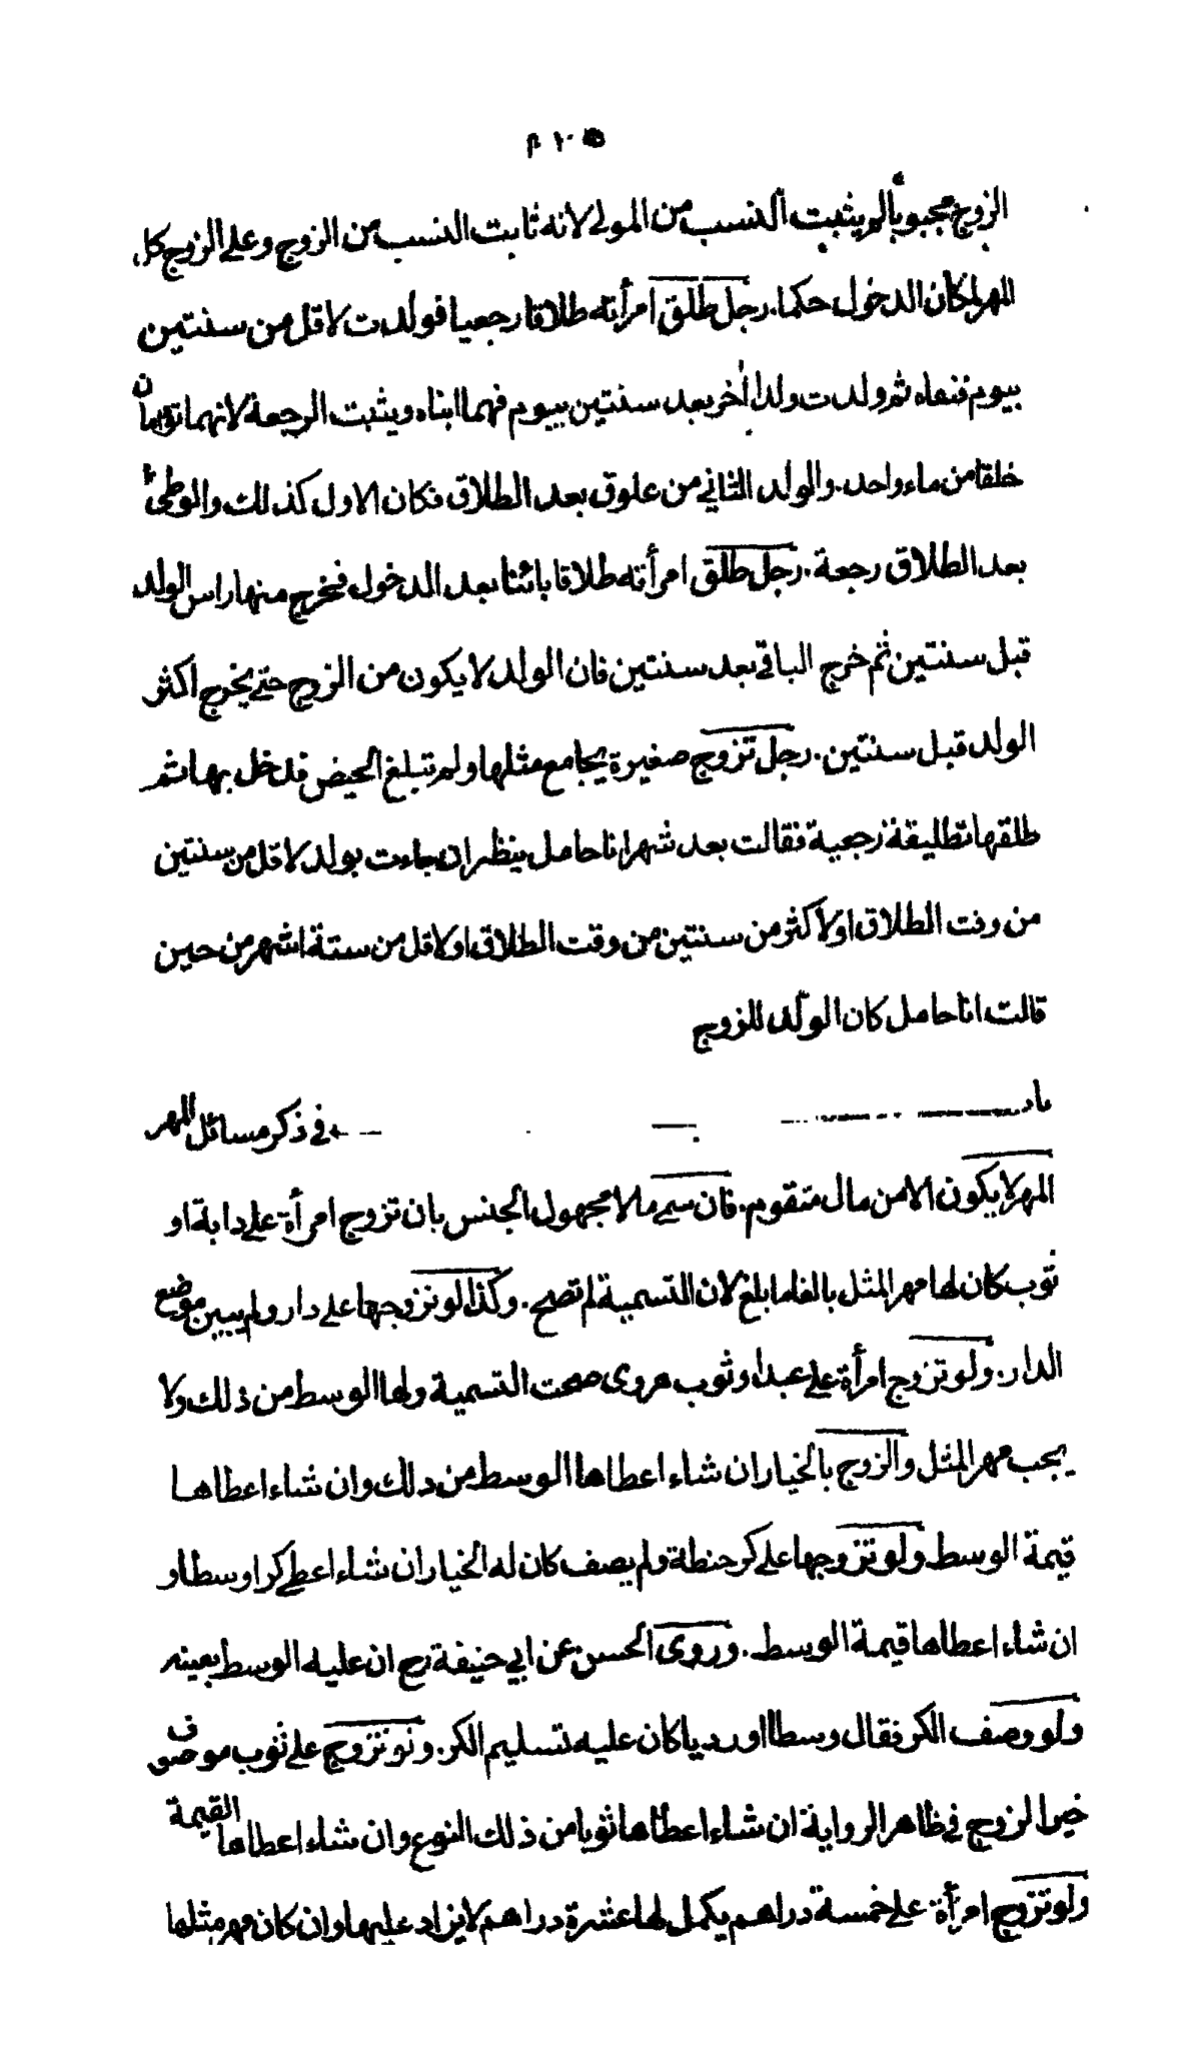 الزوج مجبوبا لم يثبت النسب من المولى لانه ثابت النسب من الزوج وعلى الزوج كل
المهر لمكان الدخول حكما. رجل طلق امرأته طلاقا رجعيا فولدت لاقل من سنتين
بيوم فنفاه ثم ولدت ولدا اٰخر بعد سنتين بيوم فهما ابناه ويثبت الرجعة لانهما توٴامان
خلقا من ماء واحد. والولد الثاني من علوق بعد الطلاق فكان الاول كذلك والوطئ
بعد الطلاق رجعة. رجل طلق امرأته طلاقا بائنا بعد الدخول فخرج منها راس الولد
قبل سنتين ثم خرج الباقي بعد سنتين فان الولد لا يكون من الزوج حتى يخرج اكثر
الولد قبل سنتين. رجل تزوج صغيرة يجامع مثلها ولم تبلغ الحيض فدخل بها ثم
طلقها تطليقة رجعية فقالت بعد شهر انا حامل ينظر ان جاءت بولد لاقل من سنتين
من وقت الطلاق او لاكثر من سنتين من وقت الطلاق او لاقل من ستة اشهر من حين
قالت انا حامل كان الولد للزوج
باب في ذكر مسائل المهر
المهر لا يكون الا من مال متقوم. فان سمى مالا مجهول الجنس بان تزوج امرأة على دابة او
ثوب كان لها مهر المثل بالغا ما بلغ لان التسمية لم تصح. وكذا لو تزوجها على دار ولم يبين موضع
الدار. ولو تزوج امرأة على عبد او ثوب هروى صحت التسمية ولها الوسط من ذلك ولا
يجب مهر المثل والزوج بالخيار ان شاء اعطاها الوسط من ذلك وان شاء اعطاها
قيمة الوسط ولو تزوجها على كر حنطة ولم يصف كان له الخيار ان شاء اعطى كرا وسطا و
ان شاء اعطاها قيمة الوسط. وروى الحسن عن ابي حنيفة رح ان عليه الوسط بعينه
ولو وصف الكر فقال وسطا او رديا كان عليه تسليم الكر. ولو تزوج على ثوب موصوف
خير الزوج في ظاهر الرواية ان شاء اعطاها ثوبا من ذلك النوع وان شاء اعطاها القيمة
ولو تزوج امرأة على خمسة دراهم يكمل لها عشرة دراهم لا يزاد عليها وان كان مهر مثلها